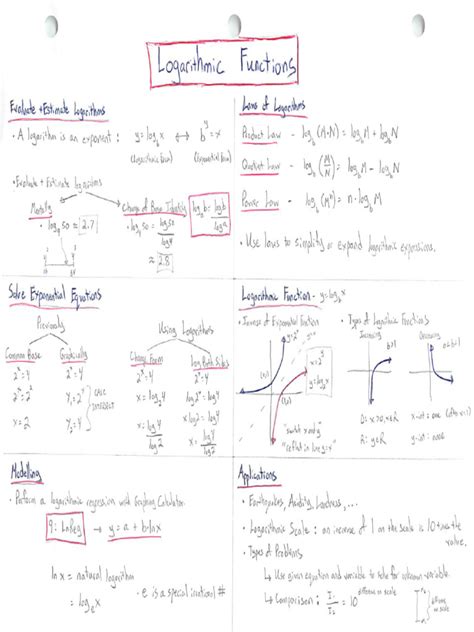 Logarithmic Functions
Evaluate + Estimate Logarithms
• A logarithm is an exponent: y = log_b x ↔ b^y = x
(Logarithmic Form) (Exponential Form)
• Evaluate + Estimate logarithms
Mentally
• log_4 50 ≈ 2.7
Change of Base Identity
log_a b = log b / log a
• log_4 50 = log 50 / log 4
≈ 2.8
Laws of Logarithms
Product Law - log_b (M·N) = log_b M + log_b N
Quotient Law - log_b (M/N) = log_b M - log_b N
Power Law - log_b (M^n) = n·log_b M
• Use laws to simplify or expand logarithmic expressions.
Solve Exponential Equations
Previously
Common Base
2^x = 4
2^x = 2^2
x = 2
Graphically
2^x = 4
y_1 = 2^x
y_2 = 4
CALC
INTERSECT
Using Logarithms
Change Form
2^x = 4
x = log_2 4
x = log 4 / log 2
Log Both Sides
2^x = 4
log 2^x = log 4
x log 2 = log 4
x = log 4 / log 2
Logarithmic Function - y = log_b x
• Inverse of Exponential Function
y = 2^x
x = 2^y
y = log_2 x
"switch x and y"
"reflect in line y = x"
• Types of Logarithmic Functions
Increasing
b>1
Decreasing
0<b<1
D: x>0, x∈R
R: y∈R
x-int = one (often x=1)
y-int: none
Modelling
• Perform a logarithmic regression with Graphing Calculator.
9: LnReg → y = a + b·lnx
ln x = natural logarithm
= log_e x
• e is a special irrational #
Applications
• Earthquakes, Acidity, Loudness, ...
• Logarithmic Scale: an increase of 1 on the scale is 10 times the
value.
• Types of Problems
↳ Use given equation and variable to solve for unknown variable.
↳ Comparison: I_1 / I_2 = 10^difference on scale
difference
on scale